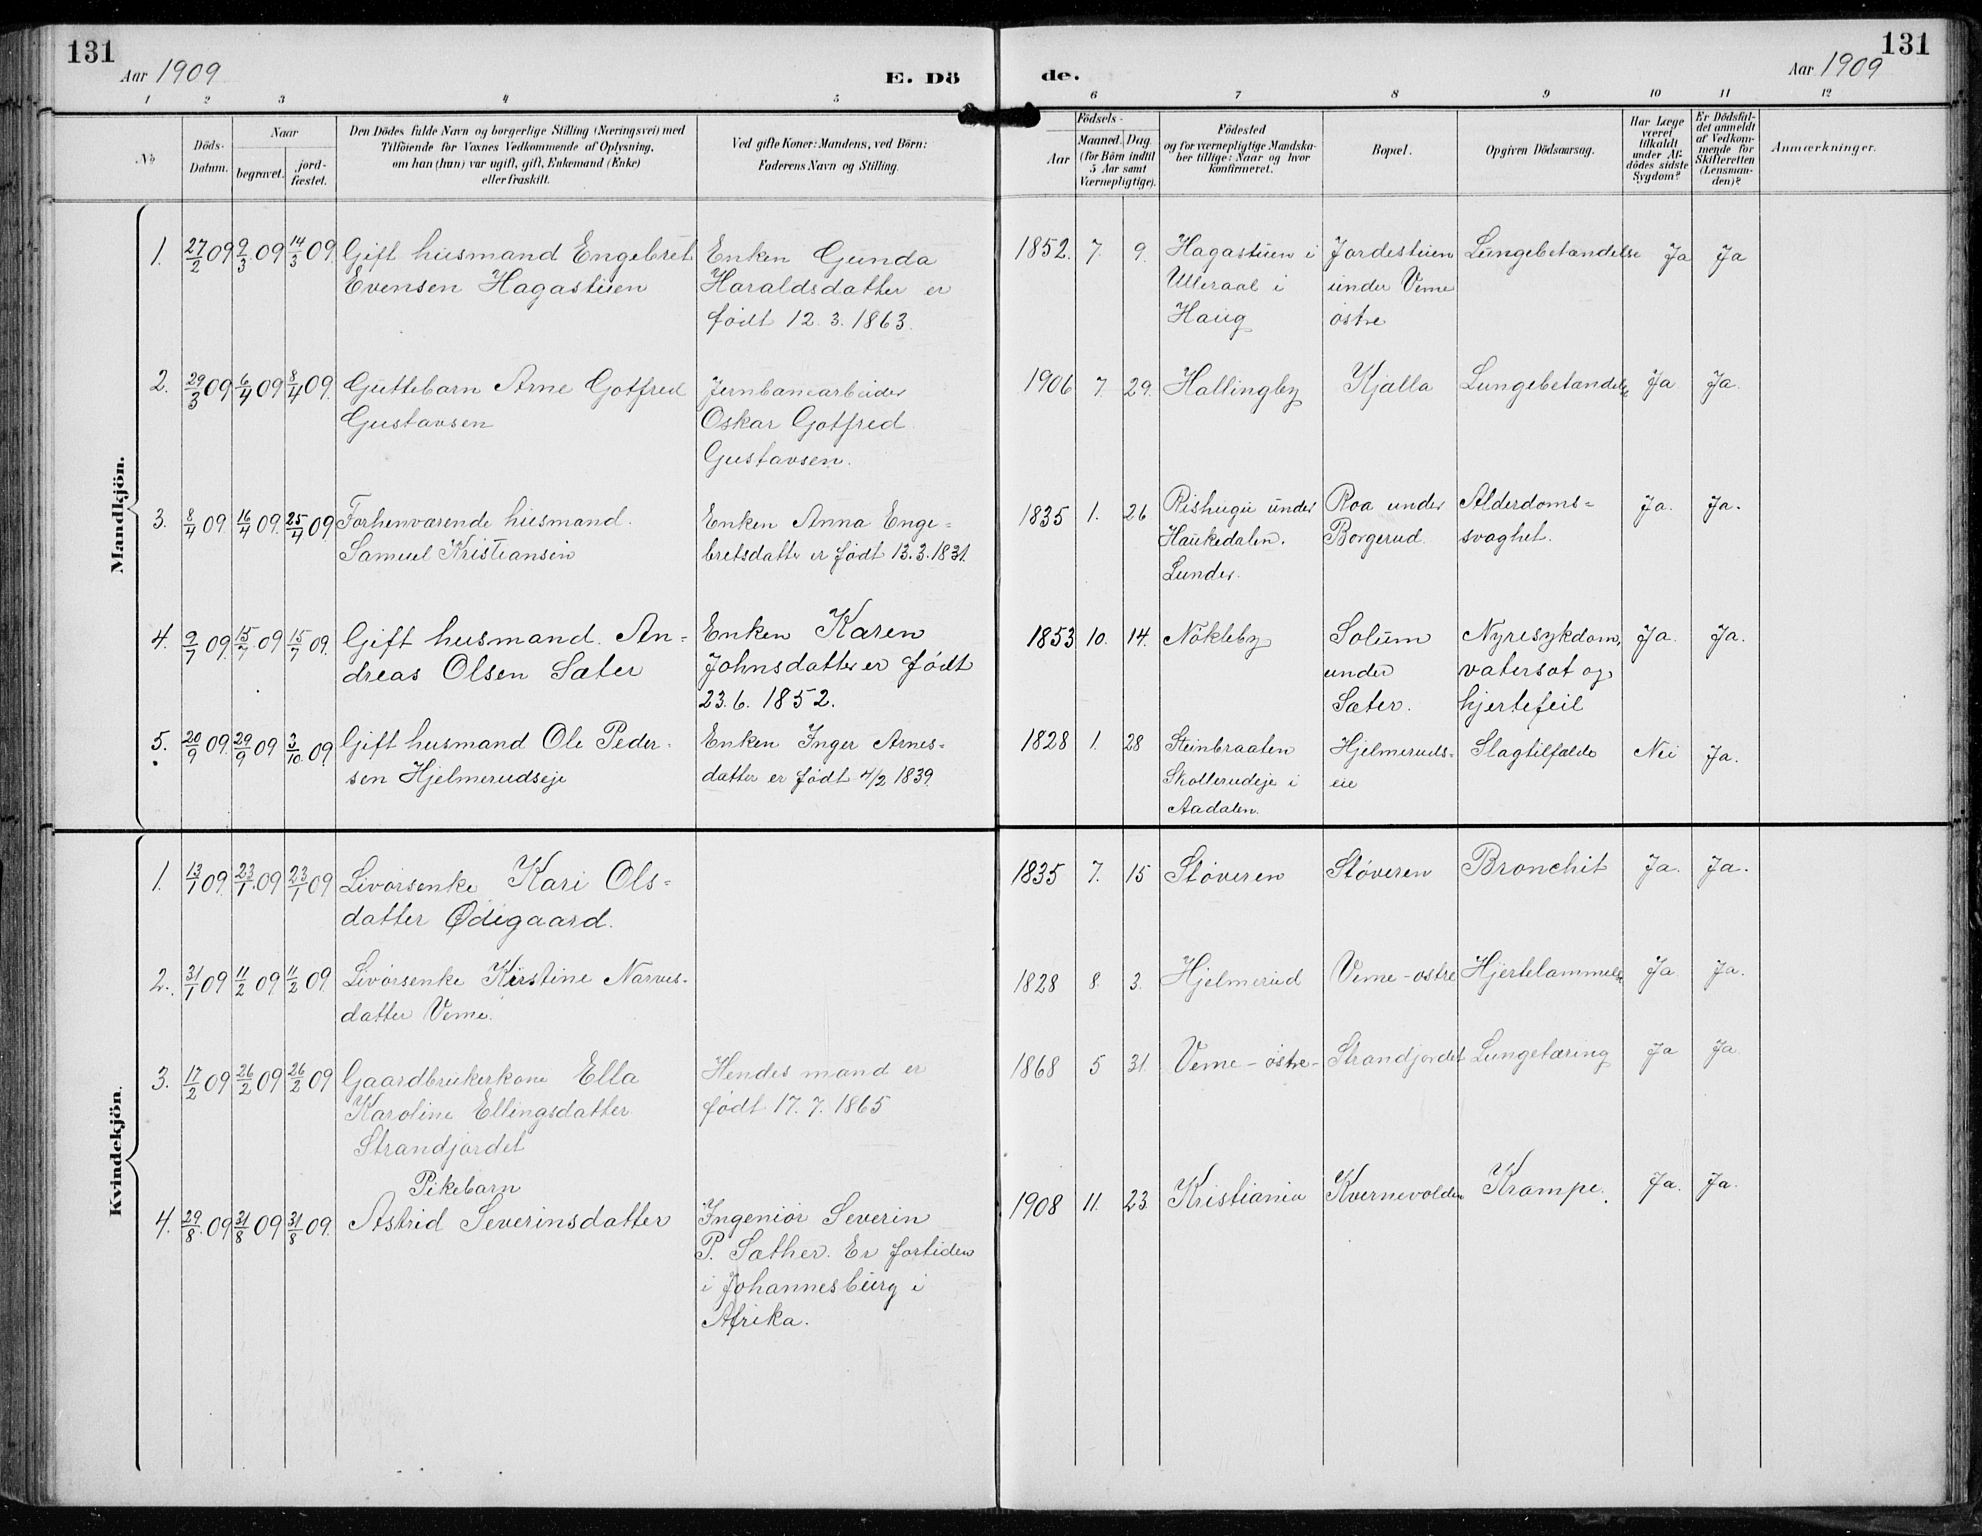 131
Aar 1909
E. Dö
de.
Aar 1909
131
1 2 3 4 5 6 7 8 9 10 11 12
No
Döds-
Datum.
Naar
begravet.
jord-
fæstet.
Den Dödes fulde Navn og borgerlige Stilling (Næringsvei) med
Tilföiende for Voxnes Vedkommende af Oplysning,
om han (hun) var ugift, gift, Enkemand (Enke)
eller fraskilt.
Ved gifte Koner: Mandens, ved Börn:
Faderens Navn og Stilling.
Födsels-
Aar
Maaned.
Dag
(for Börn indtil
5 Aar samt
Værnepligtige).
Födested
og for værnepligtige Mandska-
ber tillige: Naar og hvor
konfirmeret.
Bopæl.
Opgiven Dödsaarsag.
Har Læge
været
tilkaldt
under Af-
dödes sidste
Sygdom?
Er Dödsfal-
det anmeldt
af Vedkom-
mende for
Skifteretten
(Lensman-
den)?
Anmærkninger.
Mandkjön.
1. 27/2 09 9/3 09 14/3 09 Gift husmand Engebret Enken Gunda 1852. 7. 9. Hagastuen i Jordestuen Lungebetændelse Ja Ja
Evensen Hagastuen Haraldsdatter er Ulleraal i under Veme
født 12. 3. 1863. Haug østre
2. 29/3 09 6/4 09 8/4 09. Guttebarn Arne Gotfred Jernbanearbeider 1906 7. 29. Hallingby Kjalla Lungebetændelse Ja Ja.
Gustavsen Oskar Gotfred
Gustavsen.
3. 8/4 09. 16/4 09. 25/4 09 Forhenværende husmand. Enken Anna Enge- 1835 1. 26 Rishugu under Roa under Alderdoms- Ja. Ja.
Samuel Kristiansen bretsdatter er født 13. 3. 1831. Haukedalen. Borgerud. svaghet.
Lunder.
4. 9/7 09. 15/7 09 15/7 09. Gift husmand. An- Enken Karen 1853 10. 14. Nökleby Solum Nyresykdom, Ja. Ja.
dreas Olsen Sæter Johnsdatter er født under vatersot og
23. 6. 1852. Sæter. hjertefeil
5. 20/9 09. 29/9 09 3/10 09. Gift husmand Ole Peder- Enken Inger Arnes- 1828 1. 28 Steinbraaten Hjelmeruds- Slagtilfælde Nei Ja.
sen Hjelmerudseje datter er født 4/2 1839. Skollerudeje i eie
Aadalen.
Kvindekjön.
1. 13/1 09. 23/1 09 23/1 09 Livörsenke Kari Ols- 1835 7. 15 Støveren Støveren Bronchit Ja. Ja.
datter Ødegaard.
2. 31/1 09 11/2 09 11/2 09. Livörsenke Kirstine Narves- 1828 8 3. Hjelmerud Veme-østre Hjertelammelse Ja Ja.
datter Veme.
3. 17/2 09 26/2 09 26/2 09 Gaardbrukerkone Ella Hendes mand er 1868 5 31. Veme-östre- Strandjordet Lungetæring Ja Ja
Karoline Ellingsdatter født 17. 7. 1865
Strandjordet
Pikebarn
4. 29/8 09 31/8 09 31/8 09. Astrid Severinsdatter Ingeniör Severin 1908 11. 23. Kristiania Kvernevolden Krampe. Ja. Ja.
P. Sæther. Er fortiden
i Johannesburg i
Afrika.